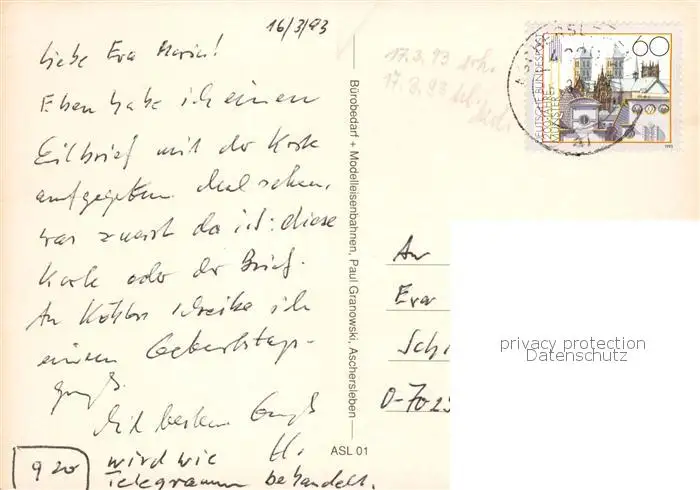 16/3/93
Liebe Eva Maria!
Eben habe ich einen
Eilbrief mit der Karte
aufgegeben. Mal sehen,
was zuerst da ist: diese
Karte oder der Brief.
An Köhlers schreibe ich
einen Geburtstags-
gruß.
Mit besten Gruß
H.
920
wird wie
Telegramm behandelt.
Bürobedarf + Modelleisenbahnen, Paul Granowski, Aschersleben
ASL 01
17.3.93
17.3.93
60
DEUTSCHE BUNDESPOST
1200 JAHRE
MÜNSTER
1993
ASCHERSLEBEN
An
Eva
Sch
O-702
privacy protection
Datenschutz